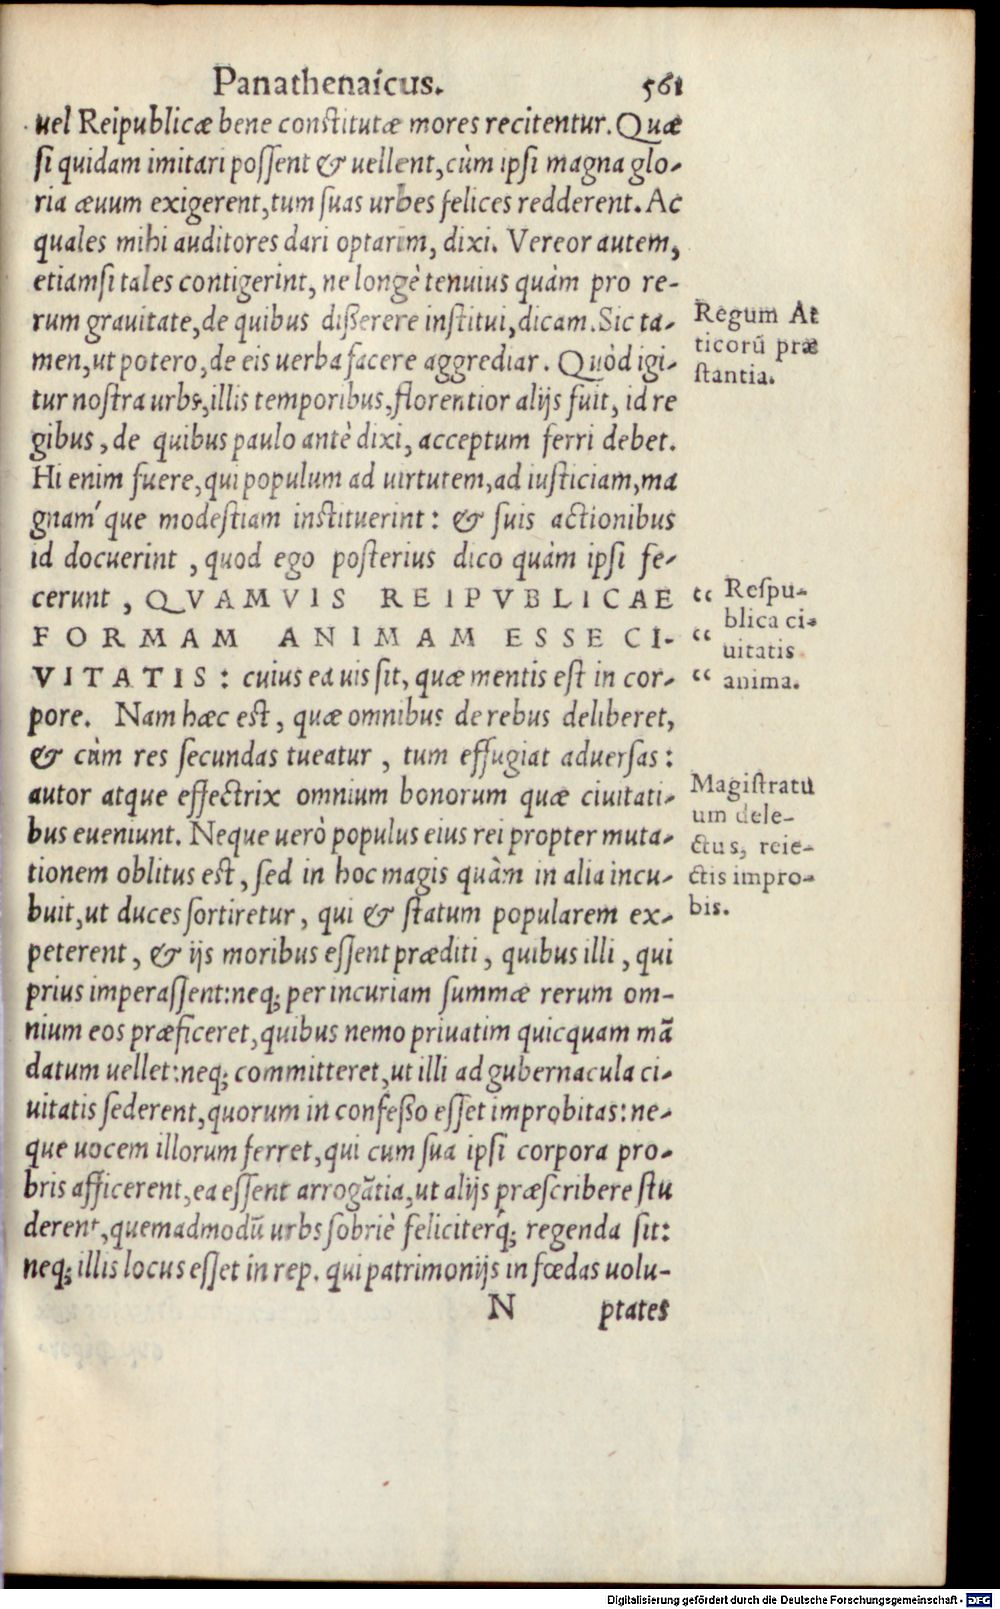 Panathenaicus. 561
uel Reipublicæ bene constitutæ mores recitentur. Quæ
si quidam imitari possent & uellent, cùm ipsi magna glo-
ria æuum exigerent, tum suas urbes felices redderent. Ac
quales mihi auditores dari optarim, dixi. Vereor autem,
etiamsi tales contigerint, ne longè tenuius quàm pro re-
rum grauitate, de quibus dißerere institui, dicam. Sic ta-
men, ut potero, de eis uerba facere aggrediar. Quòd igi-
tur nostra urbs, illis temporibus, florentior alijs fuit, id re
gibus, de quibus paulo antè dixi, acceptum ferri debet.
Hi enim fuere, qui populum ad uirtutem, ad iusticiam, ma
gnam´que modestiam instituerint: & suis actionibus
id docuerint, quod ego posterius dico quàm ipsi fe-
cerunt, QVAMVIS REIPVBLICAE
FORMAM ANIMAM ESSE CI-
VITATIS: cuius ea uis sit, quæ mentis est in cor-
pore. Nam hæc est, quæ omnibus de rebus deliberet,
& cùm res secundas tueatur, tum effugiat aduersas:
autor atque effectrix omnium bonorum quæ ciuitati-
bus eueniunt. Neque uerò populus eius rei propter muta-
tionem oblitus est, sed in hoc magis quàm in alia incu-
buit, ut duces sortiretur, qui & statum popularem ex-
peterent, & ijs moribus essent præditi, quibus illi, qui
prius imperassent: neq; per incuriam summæ rerum om-
nium eos præficeret, quibus nemo priuatim quicquam mã
datum uellet: neq; committeret, ut illi ad gubernacula ci-
uitatis sederent, quorum in confeßo esset improbitas: ne-
que uocem illorum ferret, qui cum sua ipsi corpora pro-
bris afficerent, ea essent arrogãtia, ut alijs præscribere stu
derent, quemadmodũ urbs sobriè feliciterq́; regenda sit:
neq; illis locus esset in rep. qui patrimonijs in fœdas uolu-
N ptates
Regum At
ticorũ præ
stantia.
“ Respu-
blica ci-
“ uitatis
“ anima.
Magistratu
um dele-
ctus, reie-
ctis impro-
bis.
Digitalisierung gefördert durch die Deutsche Forschungsgemeinschaft - DFG